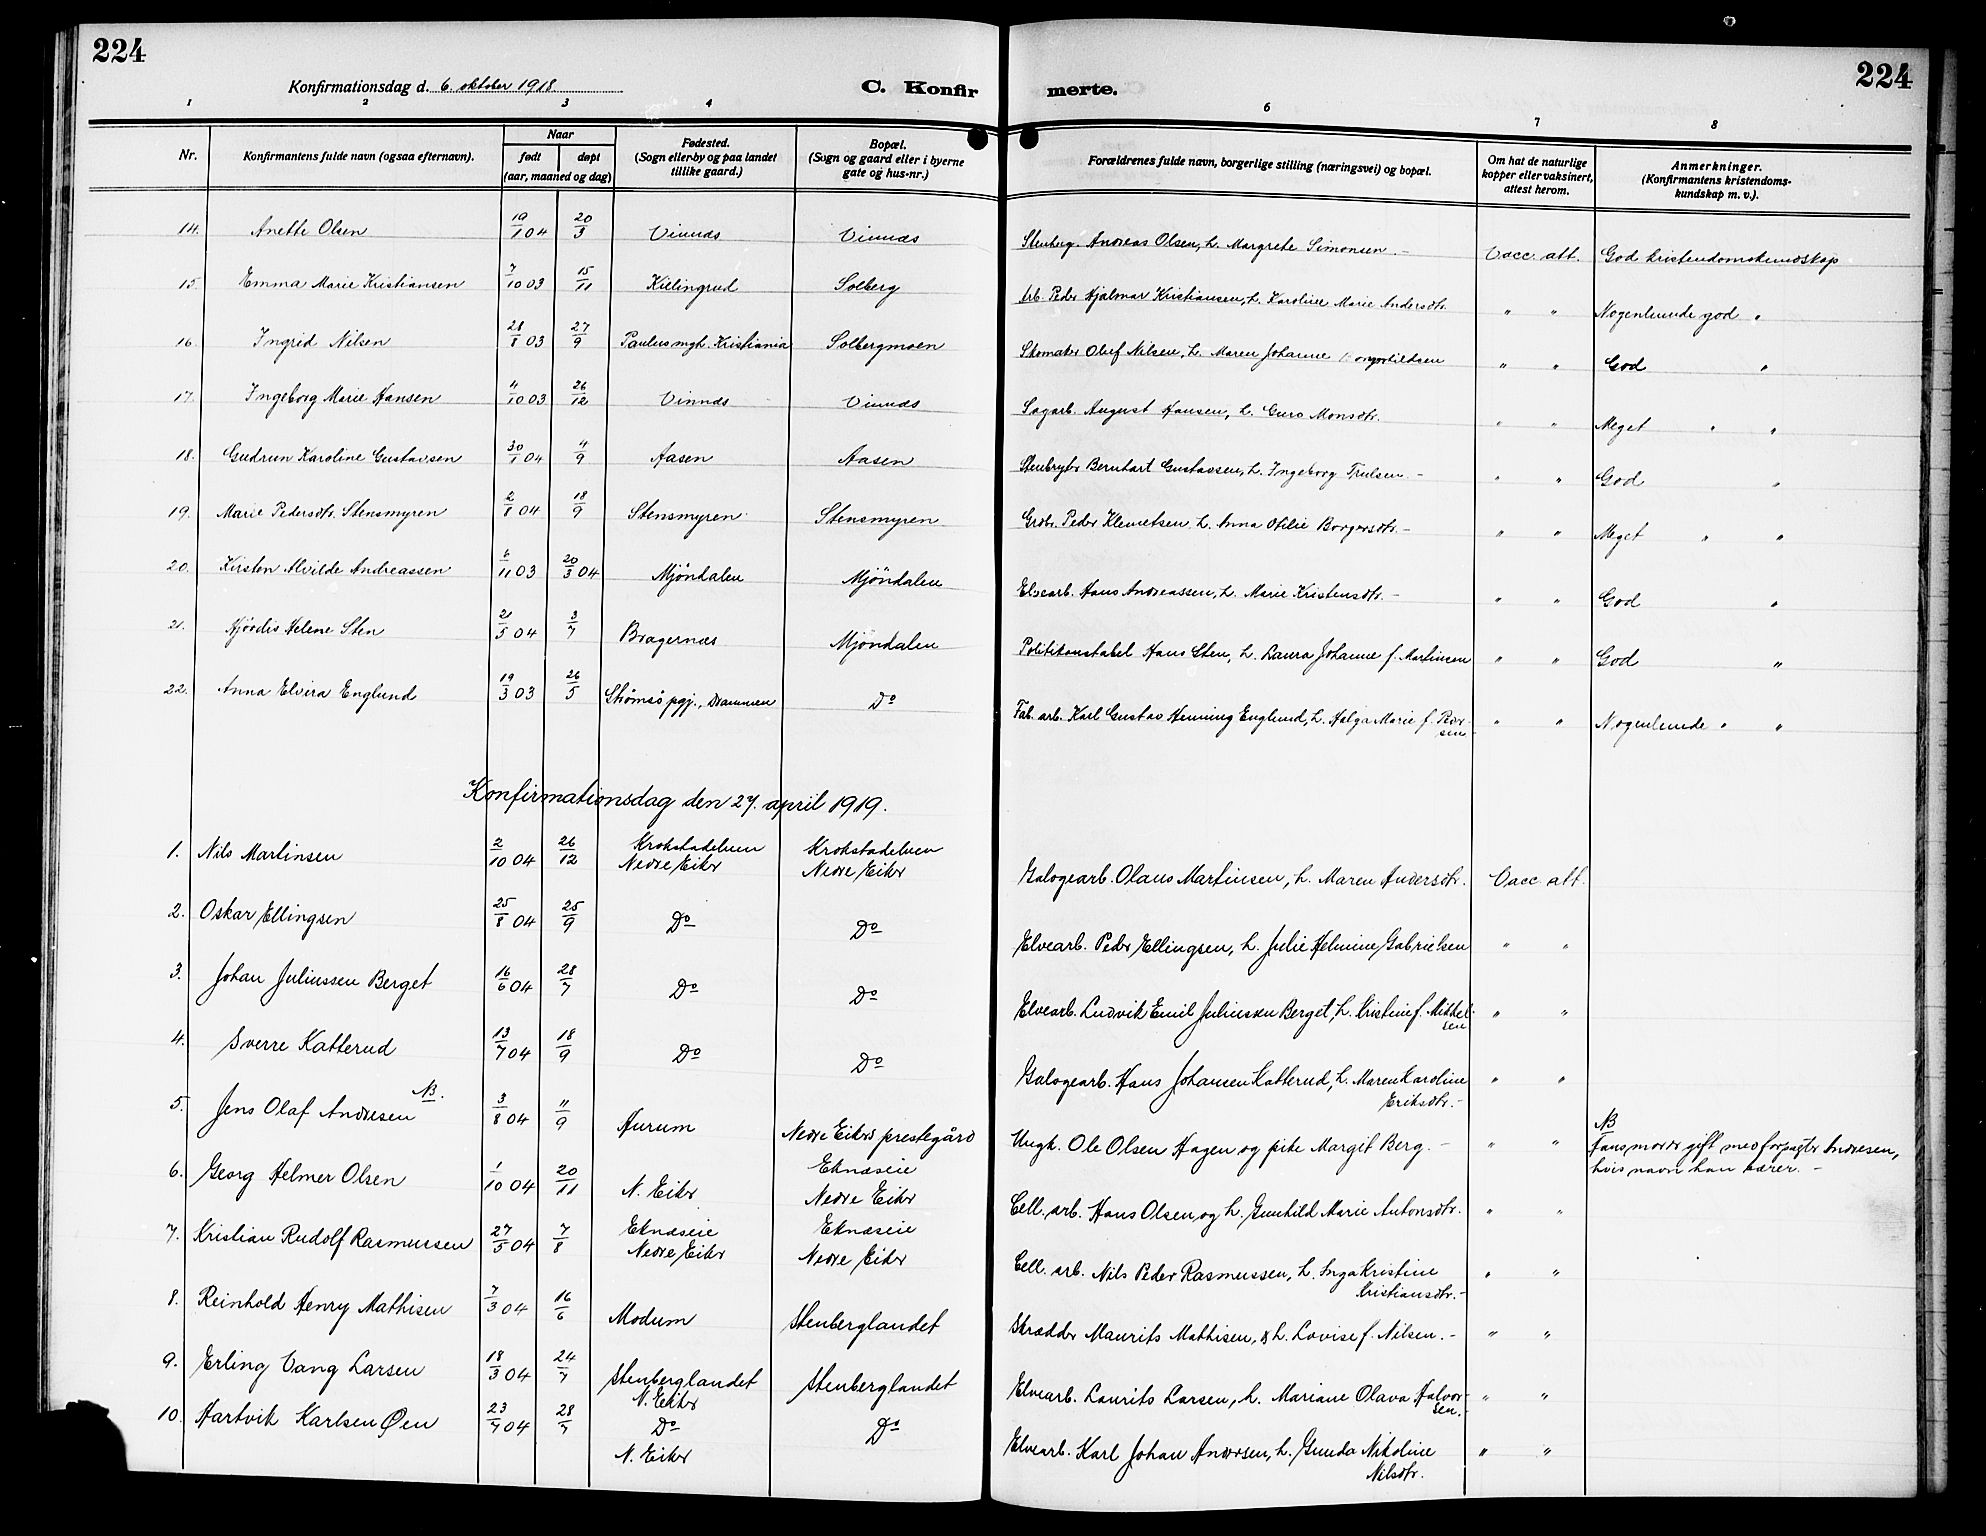 224
224
Konfirmationsdag d. 6. oktober 1918
C. Konfirmerte.
1 2 3 4 6 7 8
Nr.
Konfirmantens fulde navn (ogsaa efternavn).
Naar
født døpt
(aar, maaned og dag)
Fødested.
(Sogn eller by og paa landet
tillike gaard.)
Bopæl.
(Sogn og gaard eller i byerne
gate og hus-nr.)
Forældrenes fulde navn, borgerlige stilling (næringsvei) og bopæl.
Om hat de naturlige
kopper eller vaksinert,
attest herom.
Anmerkninger.
(Konfirmantens kristendoms-
kundskap m. v.).
14. Anette Olsen 19/1 04 20/3 Vinnæs Vinnæs Stenberg. Andreas Olsen, h. Margrete Simonsen.- Vacc. att. God kristendomskundskap
15. Emma Marie Kristiansen 7/10 03 15/11 Killingrud Solberg Arb. Peder Hjalmar Kristiansen, h. Karoline Marie Andersdtr. " " Nogenlunde god "
16. Ingrid Nilsen 28/8 03 27/9 Paulus mgh. Kristiania Solbergmoen Skomaker Oluf Nilsen, h. Maren Johanne " " God "
17. Ingeborg Marie Hansen 4/10 03 26/12 Vinnæs Vinnæs Sagarb. August Hansen, h. Guro Monsdtr. " " Meget " "
18. Gudrun Karoline Gustavsen 30/1 04 4/9 Aasen Aasen Stenbryter Bernhart Gustavsen, h. Ingeborg Trulsen.- " " God "
19. Marie Pedersdtr. Stensmyren 2/8 04 18/9 Stensmyren Stensmyren Grdbr. Peder Klemetsen h. Anna Otilie Borgersdtr.- " " Meget " "
20. Kirsten Alvilde Andreassen 6/11 03 20/3 04 Mjöndalen Mjöndalen Elvearb. Hans Andreassen, h. Marie Kristensdtr.- " " God "
21. Hjördis Helene Sten 21/5 04 3/7 Bragernæs Mjöndalen Politikonstabel Hans Sten, h. Laura Johanne f. Martinsen " " God "
22. Anna Elvira Englund 19/3 03 26/5 Strømsø pgj., Drammen Do Fab. arb. Karl Gustav Henning Englund, h. Helga Marie f. Peder-
sen " " Nogenlunde " "
Konfirmationsdag den 27. april 1919.
1. Nils Martinsen 2/10 04 26/12 Krokstadelven Krokstadelven
Nedre Eiker Nedre Eiker Galogearb. Olaus Martinsen, h. Maren Andersdtr. Vacc. att.
2. Oskar Ellingsen 25/8 04 25/9 Do Do Elvearb. Peder Ellingsen, h. Julie Helmine Gabrielsen " "
3. Johan Juliussen Berget 16/6 04 28/7 Do Do Elvearb. Ludvik Emil Juliussen Berget, h. Kristine f. Mikkel-
sen " "
4. Sverre Katterud 13/7 04 18/9 Do Do Galogearb. Hans Johansen Katterud, h. Maren Karoline
Eriksdtr.- " "
5. Jens Olaf Andresen NB. 3/8 04 11/9 Hurum Nedre Eikers prestegård Ungk. Ole Olsen Hagen og pike Margit Berg.- " " NB
Hans moder gift med forpagter Andresen,
hvis navn han bærer.-
6. Georg Helmer Olsen 1/10 04 20/11 N. Eiker Eknæseie
Nedre Eiker Cell. arb. Hans Olsen, og h. Gunhild Marie Antonsdtr. " "
7. Kristian Rudolf Rasmussen 27/5 04 7/8 Eknæseie Eknæseie
Nedre Eiker Nedre Eiker Cell. arb. Nils Peder Rasmussen, h. Inga Kristine
Kristiansdtr.- " "
8. Reinhold Henry Mathisen 7/3 04 16/6 Modum Stenberglandet Skrædder Maurits Mathisen, & h. Lovise f. Nilsen.- " "
9. Erling Vang Larsen 18/3 04 24/7 Stenberglandet Stenberglandet
N. Eiker Elvearb. Laurits Larsen, h. Mariane Olava Halvor-
sen.- " "
10. Hartvik Karlsen Øen 23/7 04 28/7 Do Do
N. Eiker Elvearb. Karl Johan Andersen, h. Gunda Nikoline
Nilsdtr. " "